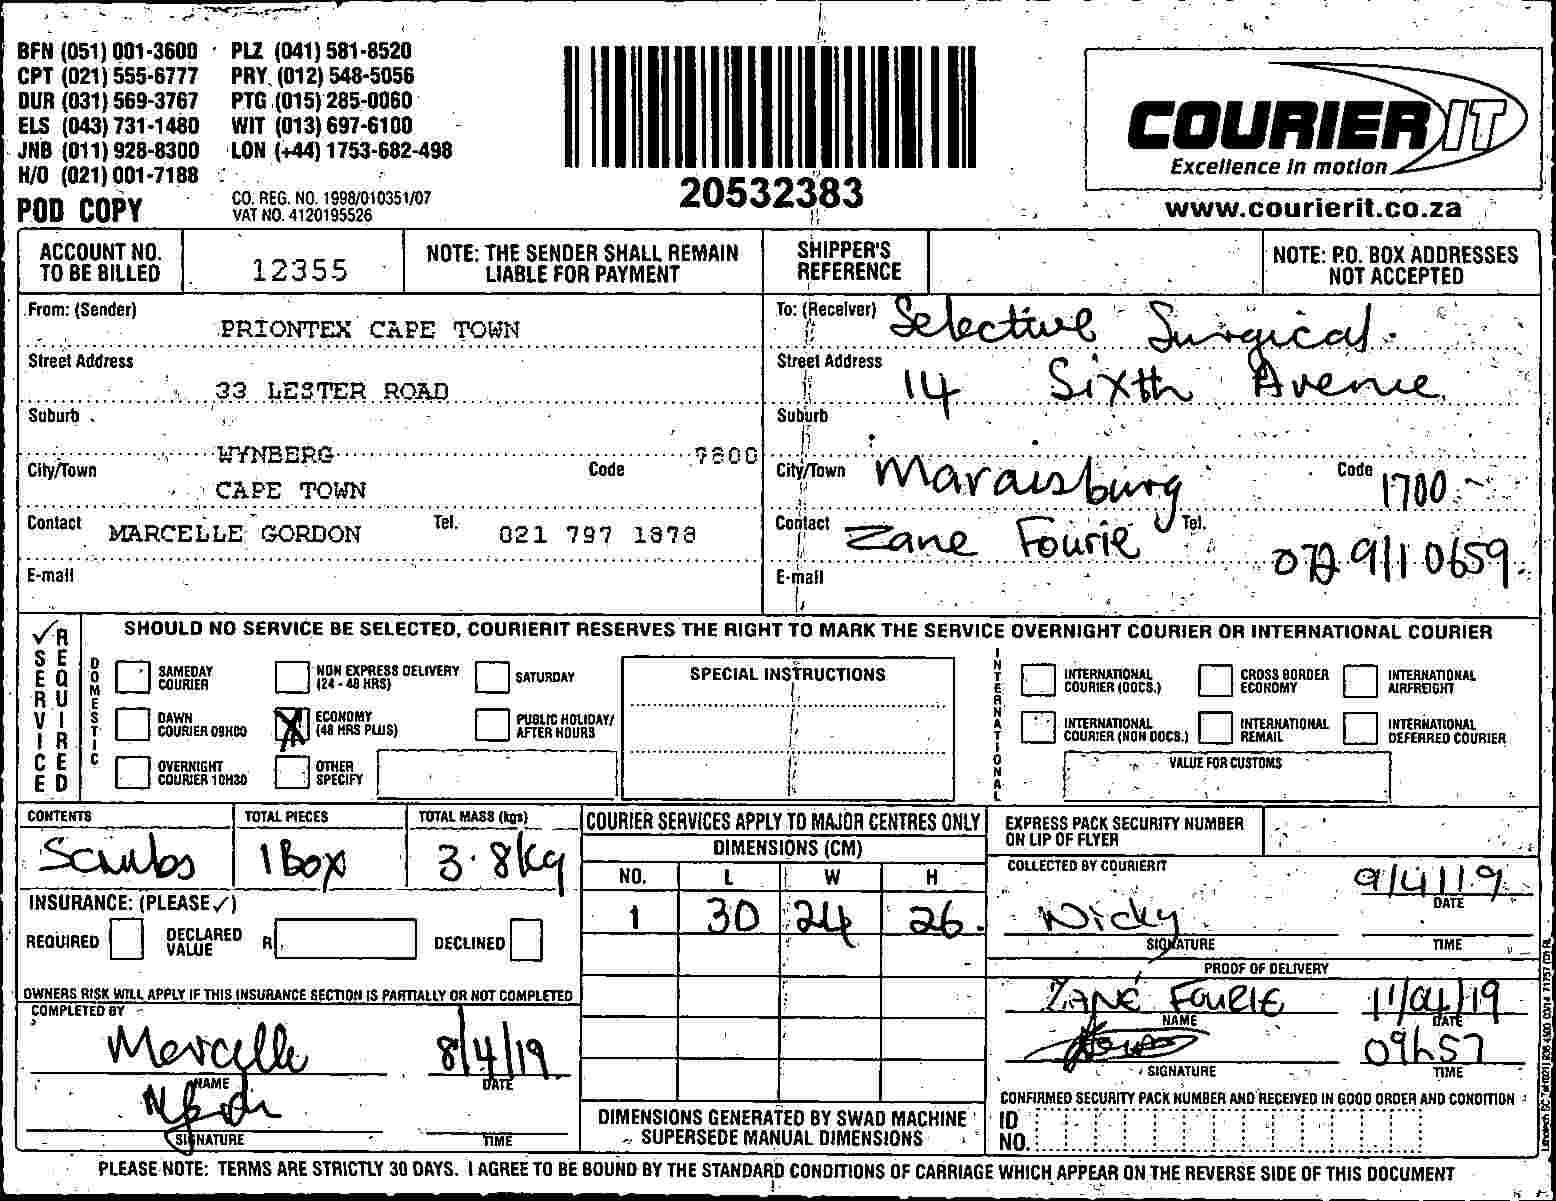 BFN (051) 001-3600 PLZ (041) 581-8520
CPT (021) 555-6777 PRY (012) 548-5056
DUR (031) 569-3767 PTG (015) 285-0060
ELS (043) 731-1480 WIT (013) 697-6100
JNB (011) 928-8300 LON (+44) 1753-682-498
H/O (021) 001-7188
CO. REG. NO. 1998/010351/07
POD COPY VAT NO. 4120195526
20532383
COURIER IT
Excellence in motion
www.courierit.co.za
ACCOUNT NO. TO BE BILLED 12355
NOTE: THE SENDER SHALL REMAIN LIABLE FOR PAYMENT
SHIPPER'S REFERENCE
NOTE: P.O. BOX ADDRESSES NOT ACCEPTED
From: (Sender) PRIONTEX CAPE TOWN
Street Address 33 LESTER ROAD
Suburb WYNBERG
City/Town CAPE TOWN Code 7800
Contact MARCELLE GORDON Tel. 021 797 1878
E-mail
To: (Receiver) Selective Surgical
Street Address 14 Sixth Avenue
Suburb
City/Town Maraisburg Code 1700
Contact Zane Fourie Tel. 072 911 0659
E-mail
SERVICE REQUIRED
SHOULD NO SERVICE BE SELECTED, COURIERIT RESERVES THE RIGHT TO MARK THE SERVICE OVERNIGHT COURIER OR INTERNATIONAL COURIER
DOMESTIC
SAMEDAY COURIER
NON EXPRESS DELIVERY (24 - 48 HRS)
SATURDAY
DAWN COURIER 09H00
X ECONOMY (48 HRS PLUS)
PUBLIC HOLIDAY/ AFTER HOURS
OVERNIGHT COURIER 10H30
OTHER SPECIFY
SPECIAL INSTRUCTIONS
INTERNATIONAL
INTERNATIONAL COURIER (DOCS.)
CROSS BORDER ECONOMY
INTERNATIONAL AIRFREIGHT
INTERNATIONAL COURIER (NON DOCS.)
INTERNATIONAL REMAIL
INTERNATIONAL DEFERRED COURIER
VALUE FOR CUSTOMS
CONTENTS Scrubs
TOTAL PIECES 1 Box
TOTAL MASS (kgs) 3.8kg
INSURANCE: (PLEASE ✓)
REQUIRED DECLARED VALUE R DECLINED
OWNERS RISK WILL APPLY IF THIS INSURANCE SECTION IS PARTIALLY OR NOT COMPLETED
COMPLETED BY
Marcelle 8/4/19
NAME DATE
SIGNATURE TIME
COURIER SERVICES APPLY TO MAJOR CENTRES ONLY
DIMENSIONS (CM)
NO. L W H
1 30 24 26
DIMENSIONS GENERATED BY SWAD MACHINE SUPERSEDE MANUAL DIMENSIONS
EXPRESS PACK SECURITY NUMBER ON LIP OF FLYER
COLLECTED BY COURIERIT
Nicky 9/4/19
DATE
SIGNATURE TIME
PROOF OF DELIVERY
ZANÉ FOURIE 11/04/19
NAME DATE
09h57
SIGNATURE TIME
CONFIRMED SECURITY PACK NUMBER AND RECEIVED IN GOOD ORDER AND CONDITION
ID NO.
PLEASE NOTE: TERMS ARE STRICTLY 30 DAYS. I AGREE TO BE BOUND BY THE STANDARD CONDITIONS OF CARRIAGE WHICH APPEAR ON THE REVERSE SIDE OF THIS DOCUMENT